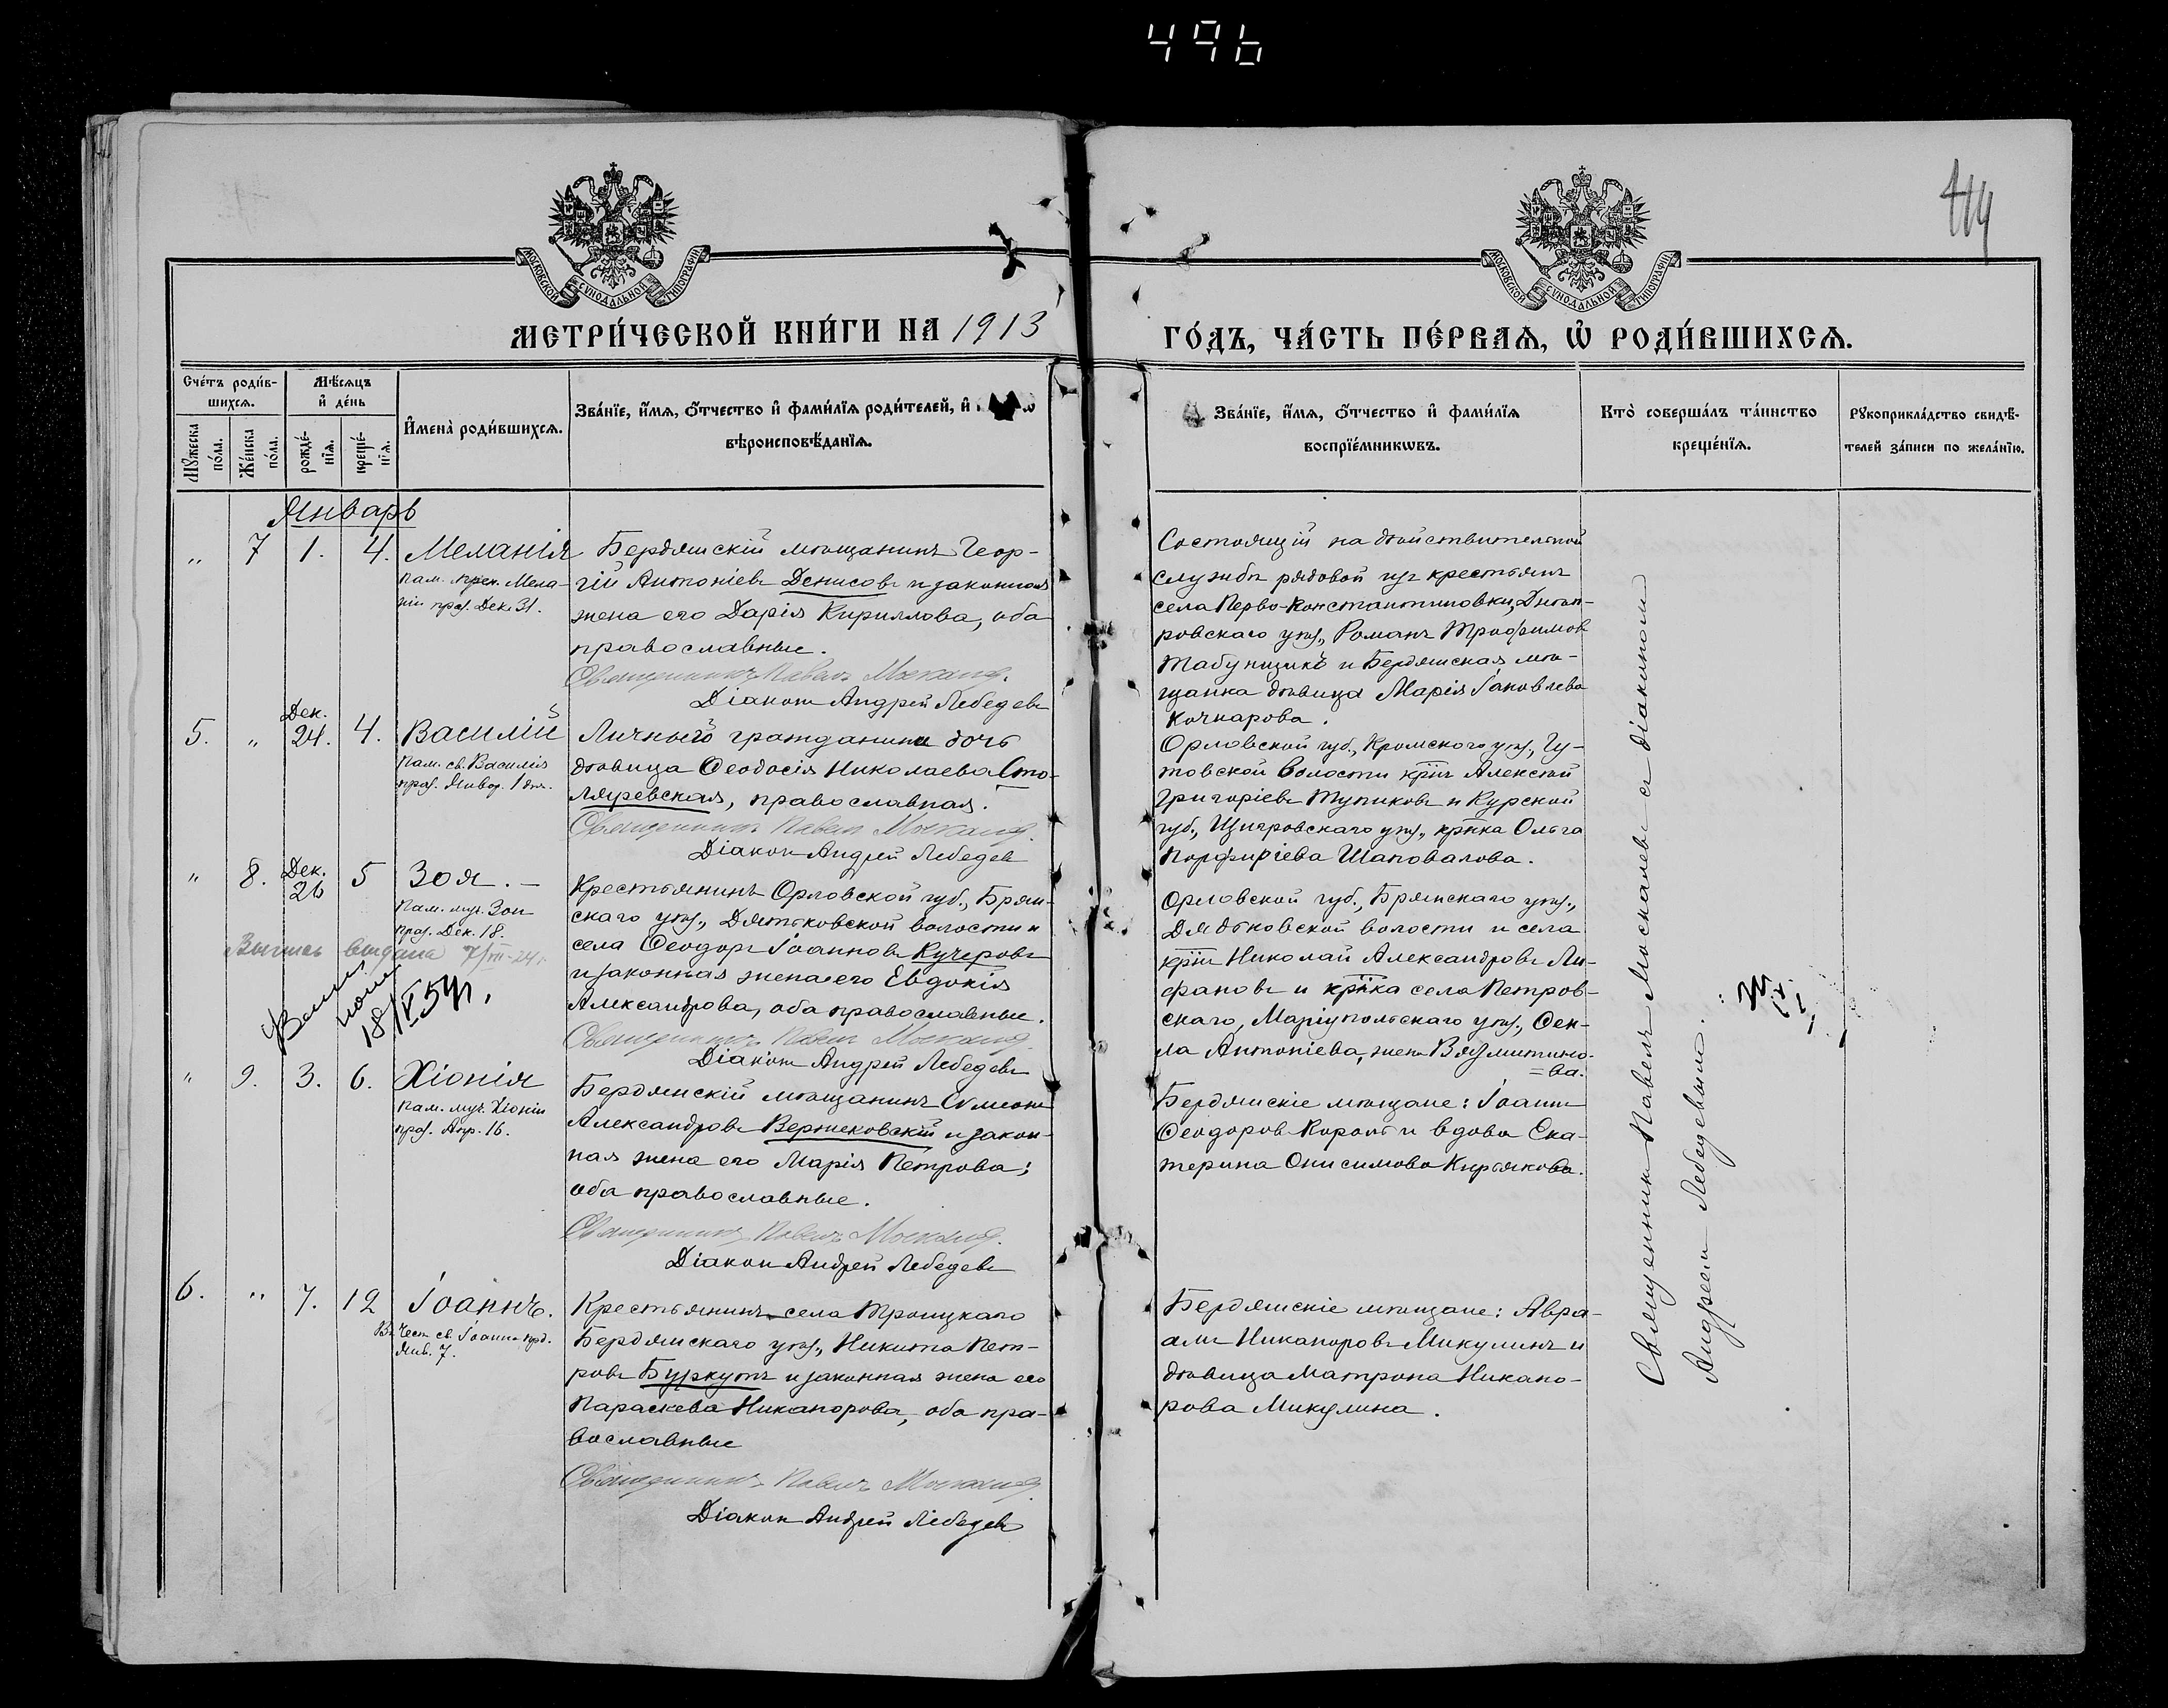 496
414
МОСКОВСКОЙ СѴНОДАЛЬНОЙ ТИПОГРАФІИ
МОСКОВСКОЙ СѴНОДАЛЬНОЙ ТИПОГРАФІИ
МЕТРИ́ЧЕСКОЙ КНИ́ГИ НА 1913
ГО́ДЪ, ЧА́СТЬ ПЕ́РВАѦ, Ѡ҆ РОДИ́ВШИХСѦ.
Сче́тъ роди́в-
шихсѧ.
Мꙋ́жеска по́ла.
Же́нска по́ла.
Мѣ́сѧцъ
и҆ де́нь
рожде́-
нїѧ.
креще́-
нїѧ.
И҆мена̀ роди́вшихсѧ.
Зва́нїе, и҆́мѧ, ѻ҆́тчество и҆ фами́лїѧ роди́телей, и҆
вѣроисповѣ́данїѧ.
Зва́нїе, и҆́мѧ, ѻ҆́тчество и҆ фами́лїѧ
воспрїе́мникѡвъ.
Кто̀ соверша́лъ та́инство
креще́нїѧ.
Рꙋкоприкла́дство свидѣ́-
телей за́писи по жела́нїю.
Январь
„ 7 1. 4. Меланія
Пам. прен. Мела-
ніи праз. Дек. 31.
Бердянскій мѣщанинъ Геор-
гій Антоніевъ Денисовъ и законная
жена его Дарія Кириллова, оба
православные.
Священникъ Павелъ
Діаконъ Андрей Лебедевъ
Состоящій на дѣйствительной
службѣ рядовой изъ крестьянъ
села Перво-Константиновки, Днѣп-
ровскаго уѣз., Романъ Трофимовъ
Табунщикъ и Бердянская мѣ-
щанка дѣвица Марія Іаковлева
Кочкарова.
5. „ Дек. 24. 4. Василій
Пам. св. Василія
праз. Январ. 1 дня.
Личнаго гражданина дочь
дѣвица Ѳеодосія Николаева Сто-
ляревская, православная.
Священникъ Павелъ
Діаконъ Андрей Лебедевъ
Орловской губ., Кромского уѣз., Гу-
товской волости кр̅нъ Алексѣй
Григоріевъ Тупиковъ и Курской
губ., Щигровскаго уѣз., кр̅нка Ольга
Порфиріева Шаповалова.
„ 8. Дек. 26 5 Зоя. —
Пам. муч. Зои
праз. Дек. 18.
Выпись выдана 7/VII-24 г.
18/V 54 г.
Крестьянинъ Орловской губ., Брян-
скаго уѣз., Дятьковской волости и
села Ѳеодоръ Іоанновъ Кучеровъ
и законная жена его Евдокія
Александрова, оба православные.
Священникъ Павелъ
Діаконъ Андрей Лебедевъ
Орловской губ., Брянскаго уѣз.,
Дядьковской волости и села
кр̅нъ Николай Александровъ Ли-
фановъ и кр̅нка села Петров-
скаго, Маріупольскаго уѣз., Ѳек-
ла Антоніева, жена Вязмитино-
=ва.
„ 9. 3. 6. Хіонія
Пам. муч. Хіоніи
праз. Апр. 16.
Бердянскій мѣщанинъ Сѵмеонъ
Александровъ Вержековскій и закон-
ная жена его Марія Петрова;
оба православные.
Священникъ Павелъ
Діаконъ Андрей Лебедевъ
Бердянскіе мѣщане: Іоаннъ
Ѳеодоровъ Король и вдова Ека-
терина Онисимова Кирьякова.
6. „ 7. 12 Іоаннъ.
Въ чест св. Іоанна прд.
Янв. 7.
Крестьянинъ села Троицкаго
Бердянскаго уѣз., Никита Пет-
ровъ Буркутъ и законная жена его
Параскева Никанорова, оба пра-
вославные
Священникъ Павелъ
Діаконъ Андрей Лебедевъ
Бердянскіе мѣщане: Авра-
амъ Никаноровъ Микулинъ и
дѣвица Матрона Никано-
рова Микулина.
Священникъ Павелъ Москалевъ съ діакономъ
Андреемъ Лебедевымъ.